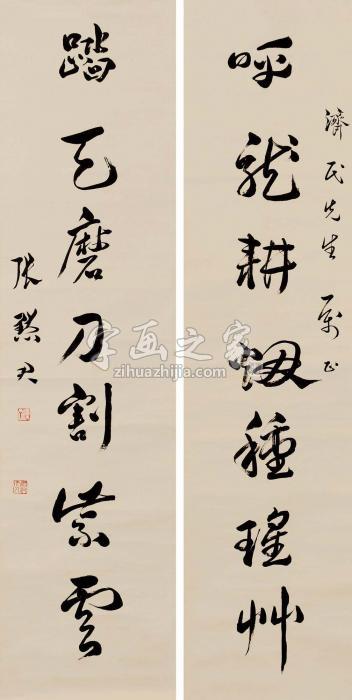 濟民先生 屬正
呼龍耕煙種瑤草
踏天磨刀割紫雲
張默君
字画之家
zihuazhijia.com